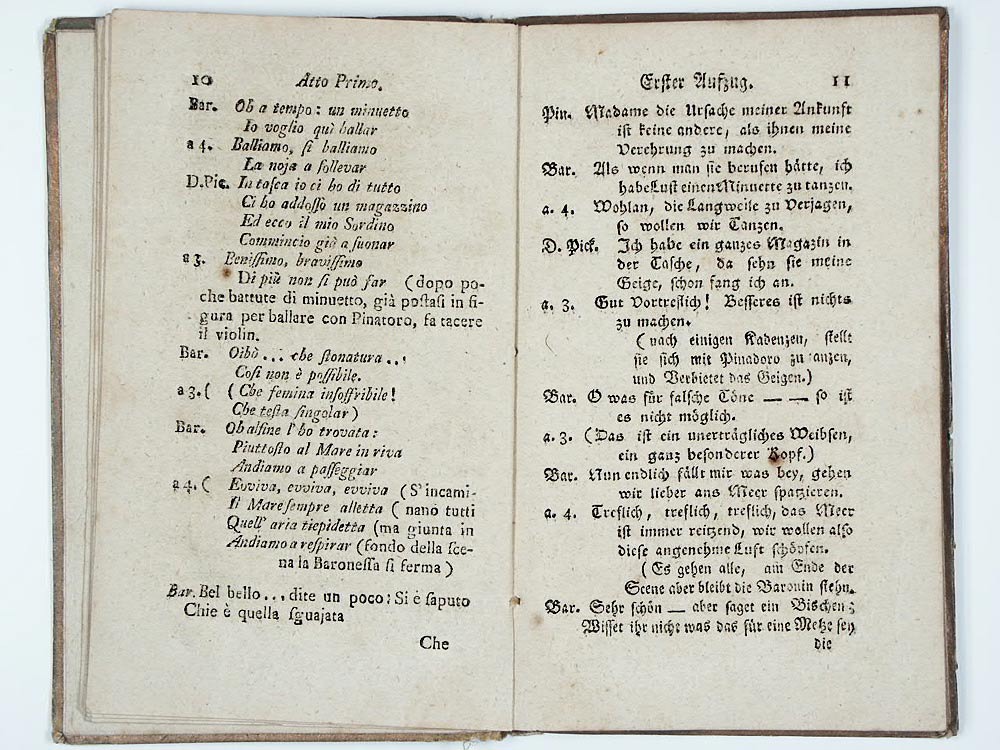 10 Atto Primo.
Bar. Ob a tempo: un minuetto
Io voglio quì ballar
a 4. Balliamo, sì balliamo
La noja a sollevar
D.Pic. In tasca io ci ho di tutto
Ci ho addosso un magazzino
Ed ecco il mio Sordino
Commincio già a suonar
a 3. Benissimo, bravissimo
Di più non si può far (dopo po-
che battute di minuetto, già postasi in fi-
gura per ballare con Pinatoro, fa tacere
il violin.
Bar. Oibò... che stonatura...
Così non è possibile.
a 3. ( (Che femina insoffribile!
Che testa singolar)
Bar. Ob alfine l'ho trovata:
Piuttosto al Mare in riva
Andiamo a passeggiar
a 4. ( Evviva, evviva, evviva (S'incami-
Il Mare sempre alletta (nano tutti
Quell' aria tiepidetta (ma giunta in
Andiamo a respirar (fondo della sce-
na la Baronessa si ferma)
Bar. Bel bello... dite un poco: Si è saputo
Chie è quella sguajata
Che
Erster Aufzug. 11
Pin. Madame die Ursache meiner Ankunft
ist keine andere, als ihnen meine
Verehrung zu machen.
Bar. Als wenn man sie berufen hätte, ich
habe Lust einen Minuette zu tanzen.
a. 4. Wohlan, die Langweile zu Verjagen,
so wollen wir Tanzen.
D. Pick. Ich habe ein ganzes Magazin in
der Tasche, da sehn sie meine
Geige, schon fang ich an.
a. 3. Gut Vortreflich! Besseres ist nichts
zu machen.
(nach einigen Kadenzen, stellt
sie sich mit Pinadoro zu anzen,
und Verbietet das Geigen.)
Bar. O was für falsche Töne — — so ist
es nicht möglich.
a. 3. (Das ist ein unerträgliches Weibsen,
ein ganz besonderer Kopf.)
Bar. Nun endlich fällt mir was bey, gehen
wir lieber ans Meer spatzieren.
a. 4. Treflich, treflich, treflich, das Meer
ist immer reitzend, wir wollen also
diese angenehme Luft schöpfen.
(Es gehen alle, am Ende der
Scene aber bleibt die Baronin stehn.
Bar. Sehr schön — aber saget ein Bischen:
Wisset ihr nicht was das für eine Metze sey
die